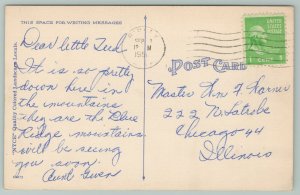 THIS SPACE FOR WRITING MESSAGES
Dear little Ted.
It is so pretty
down here in
the mountains
they are the Blue
Ridge mountains
will be seeing
you soon.
Aunt Gwen
POST CARD
1 CENT
Master Wm F. Korner
222 N. Latrobe
Chicago 44
Illinois